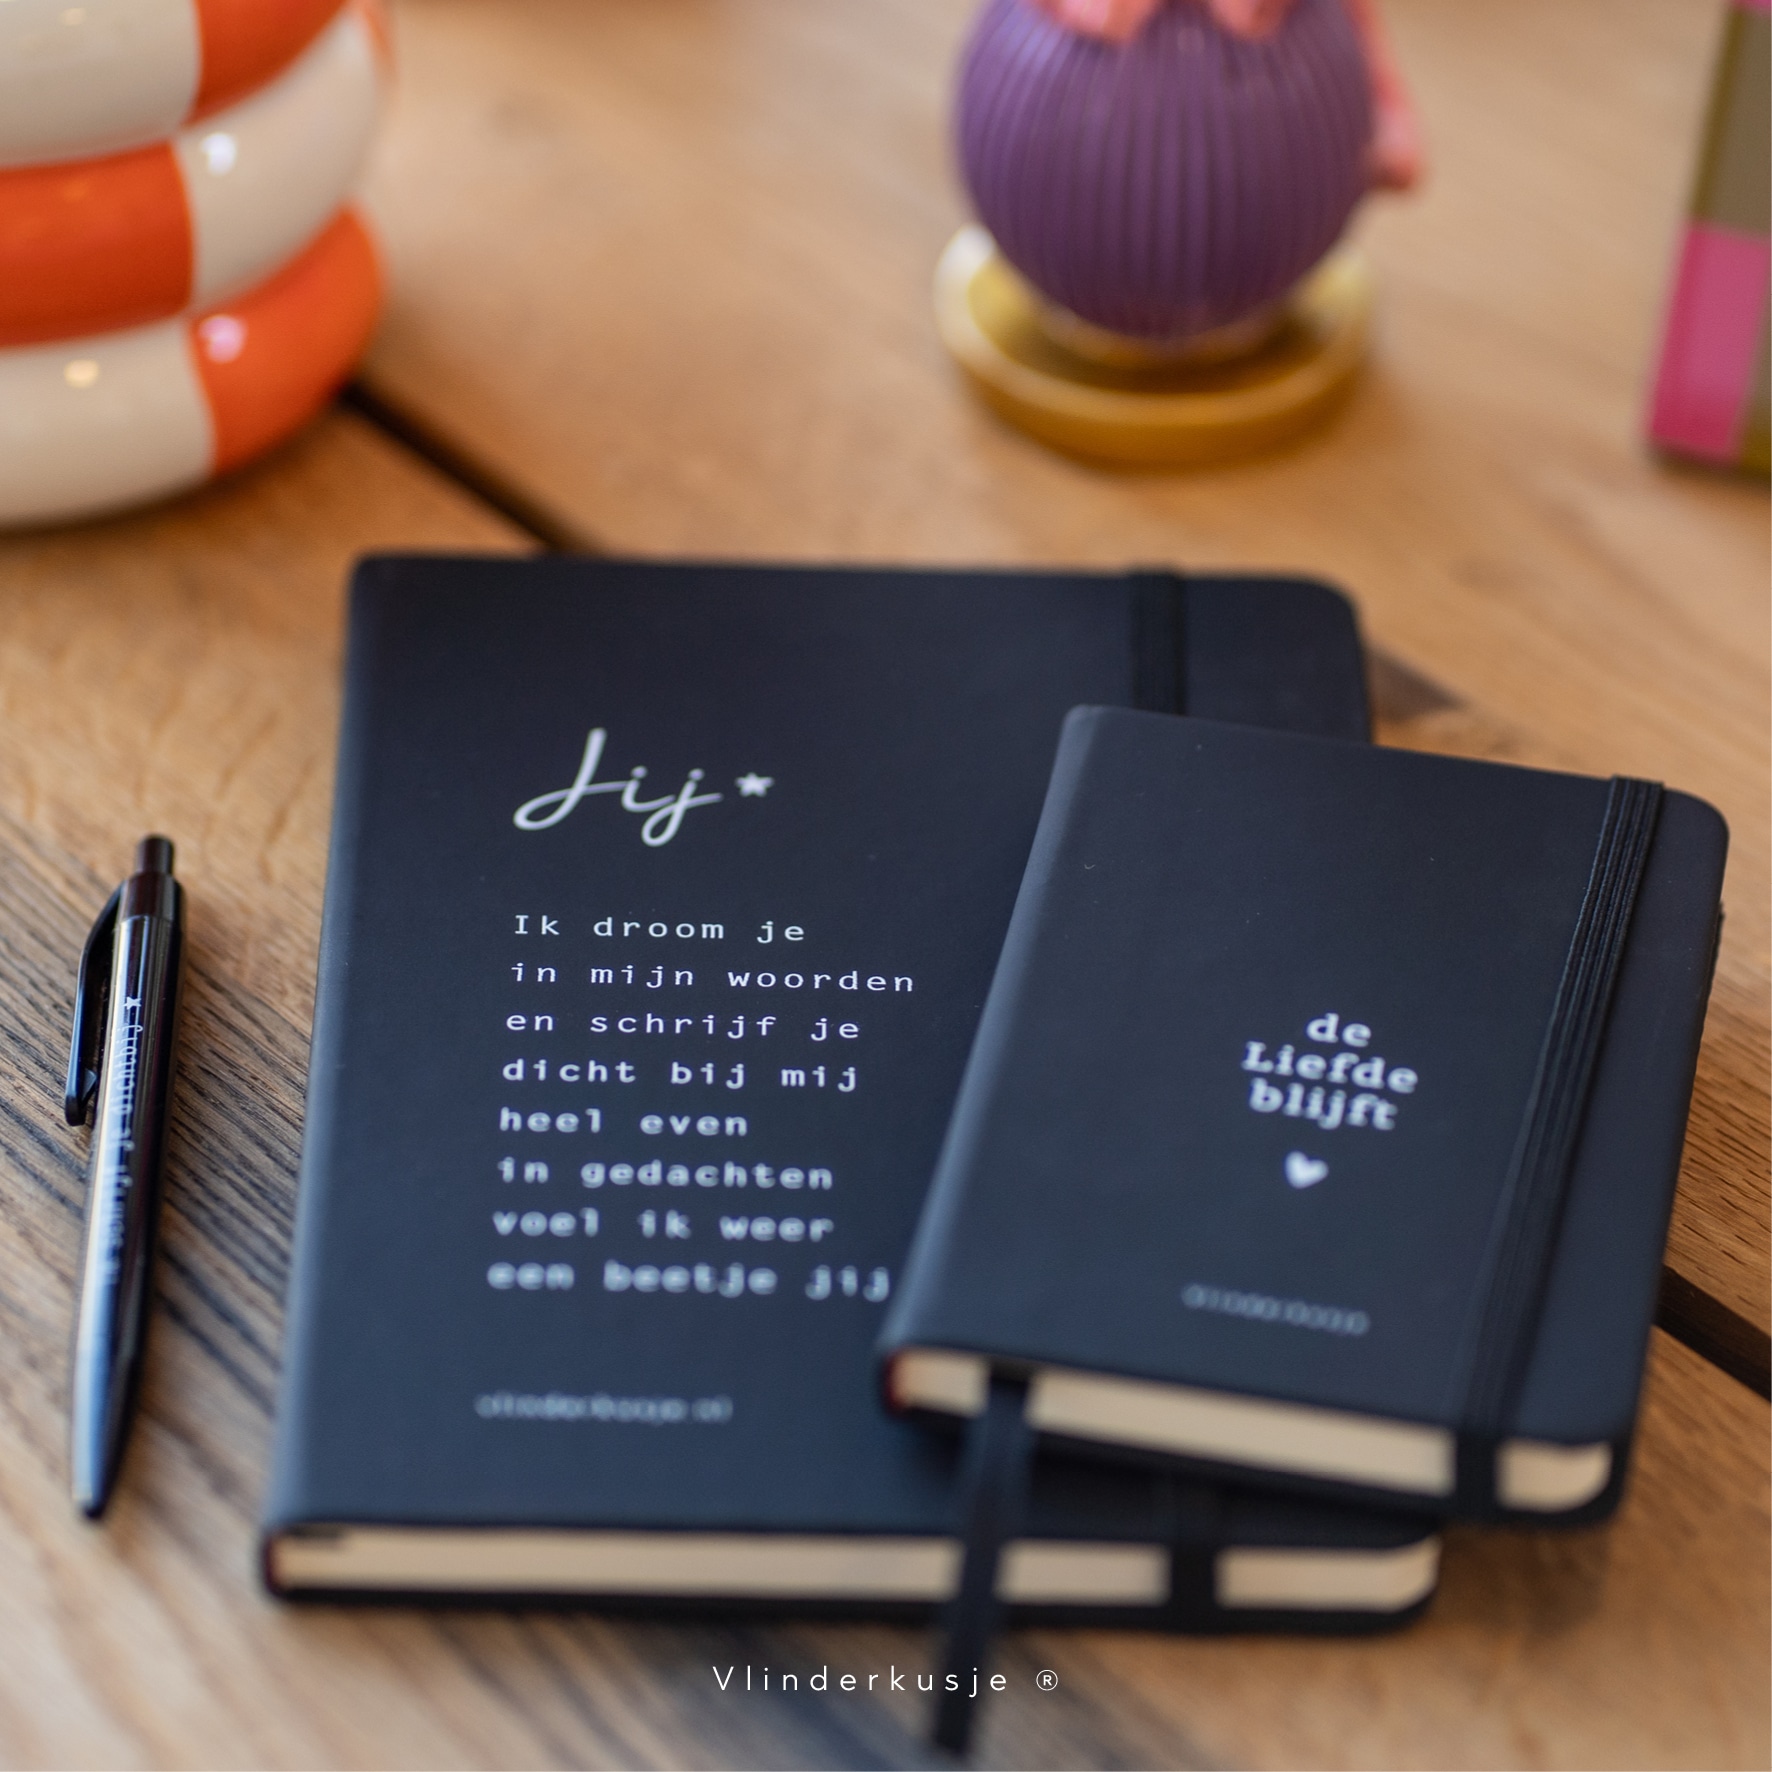 Jij
Ik droom je
in mijn woorden
en schrijf je
dicht bij mij
heel even
in gedachten
voel ik weer
een beetje jij
vlinderkusje.nl
de
Liefde
blijft
ik schrijf je dichtbij
Vlinderkusje ®